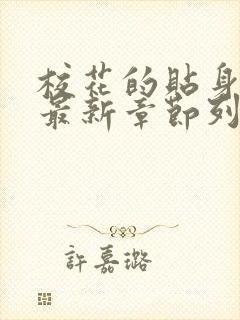 校花的貼身
最新章節列
許嘉璐